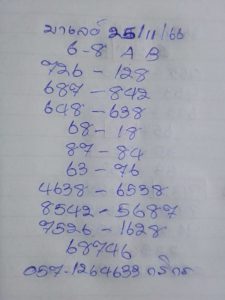 มาเลย์ 25/11/66
6-8 A B
726 - 128
687 - 842
648 - 638
68 - 18
87 - 84
63 - 76
4638 - 6538
8542 - 5687
7526 - 1628
68746
057-1264633